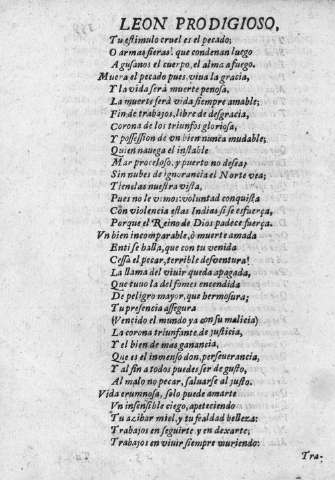 LEON PRODIGIOSO,
Tu estimulo cruel es el pecado;
O armas fieras! que condenan luego
A gusanos el cuerpo, el alma a fuego.
Muera el pecado pues, viua la gracia,
Y la vida serà muerte penosa,
La muerte serà vida siempre amable;
Fin de trabajos, libre de desgracia,
Corona de los triunfos gloriosa,
Y possession de vn bien nunca mudable;
Quien nauega el instable
Mar proceloso, y puerto no desea;
Sin nubes de ignorancia el Norte vea;
Tienelas nuestra vista,
Pues no le vemos: voluntad conquista
Con violencia estas Indias si se esfuerça,
Porque el Reino de Dios padece fuerça.
Vn bien incomparable, ò muerte amada
En ti se halla, que con tu venida
Cessa el pecar, terrible desventura!
La llama del viuir queda apagada,
Que tuuo la del fomes encendida
De peligro mayor, que hermosura;
Tu presencia assegura
(Vencido el mundo ya con su malicia)
La corona triunfante de justicia,
Y el bien de mas ganancia,
Que es el inmenso don, perseuerancia,
Y al fin a todos puedes ser de gusto,
Al malo no pecar, saluarse al justo.
Vida erumnosa, solo puede amarte
Vn insensible ciego, apeteciendo
Tu azibar miel, y tu fealdad belleza:
Trabajos en seguirte y en dexarte;
Trabajos en viuir siempre muriendo:
Tra-